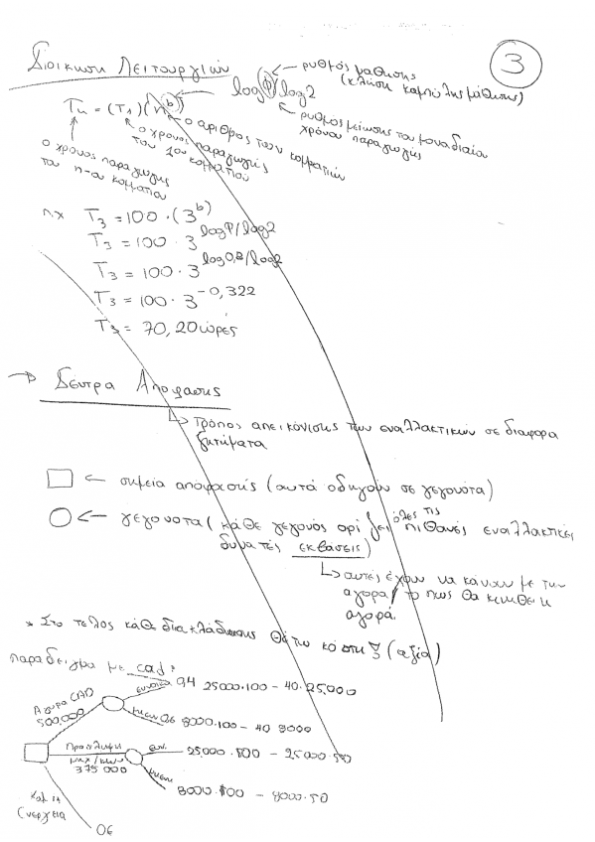 3
Διοίκηση Λειτουργιών
logφ/log2
ρυθμός μάθησης
(κλίση καμπύλης μάθησης)
ρυθμός μείωσης του μοναδιαία
χρόνου παραγωγής
Tn = (T1)(n^b)
ο αριθμός των κομματιών
ο χρόνος παραγωγής
του 1ου κομματιού
ο χρόνος παραγωγής
του n-ου κομματιού
π.χ T3 = 100 · (3^b)
T3 = 100 · 3^logφ/log2
T3 = 100 · 3^log0,8/log2
T3 = 100 · 3^-0,322
T3 = 70,20 ώρες
→ Δέντρα Απόφασης
Τρόπος απεικόνισης των εναλλακτικών σε διάφορα
ζητήματα
□ ← σημεία απόφασης (αυτά οδηγούν σε γεγονότα)
○ ← γεγονότα (κάθε γεγονός ορίζει όλες τις πιθανές εναλλακτικές
δυνατές εκβάσεις)
αυτές έχουν να κάνουν με την
αγορά / το πως θα κινηθεί η
αγορά
* Στο τέλος κάθε διακλάδωσης θέτω κόστη ή (αξία)
παράδειγμα με cad:
Αγορά CAD
500,000
0,4 25000·100 - 40·25,000
0,6 8000·100 - 40 8000
Πρόσληψη
375 000
ευν. 25,000·100 - 25,000·50
8000·100 - 8000·50
0€